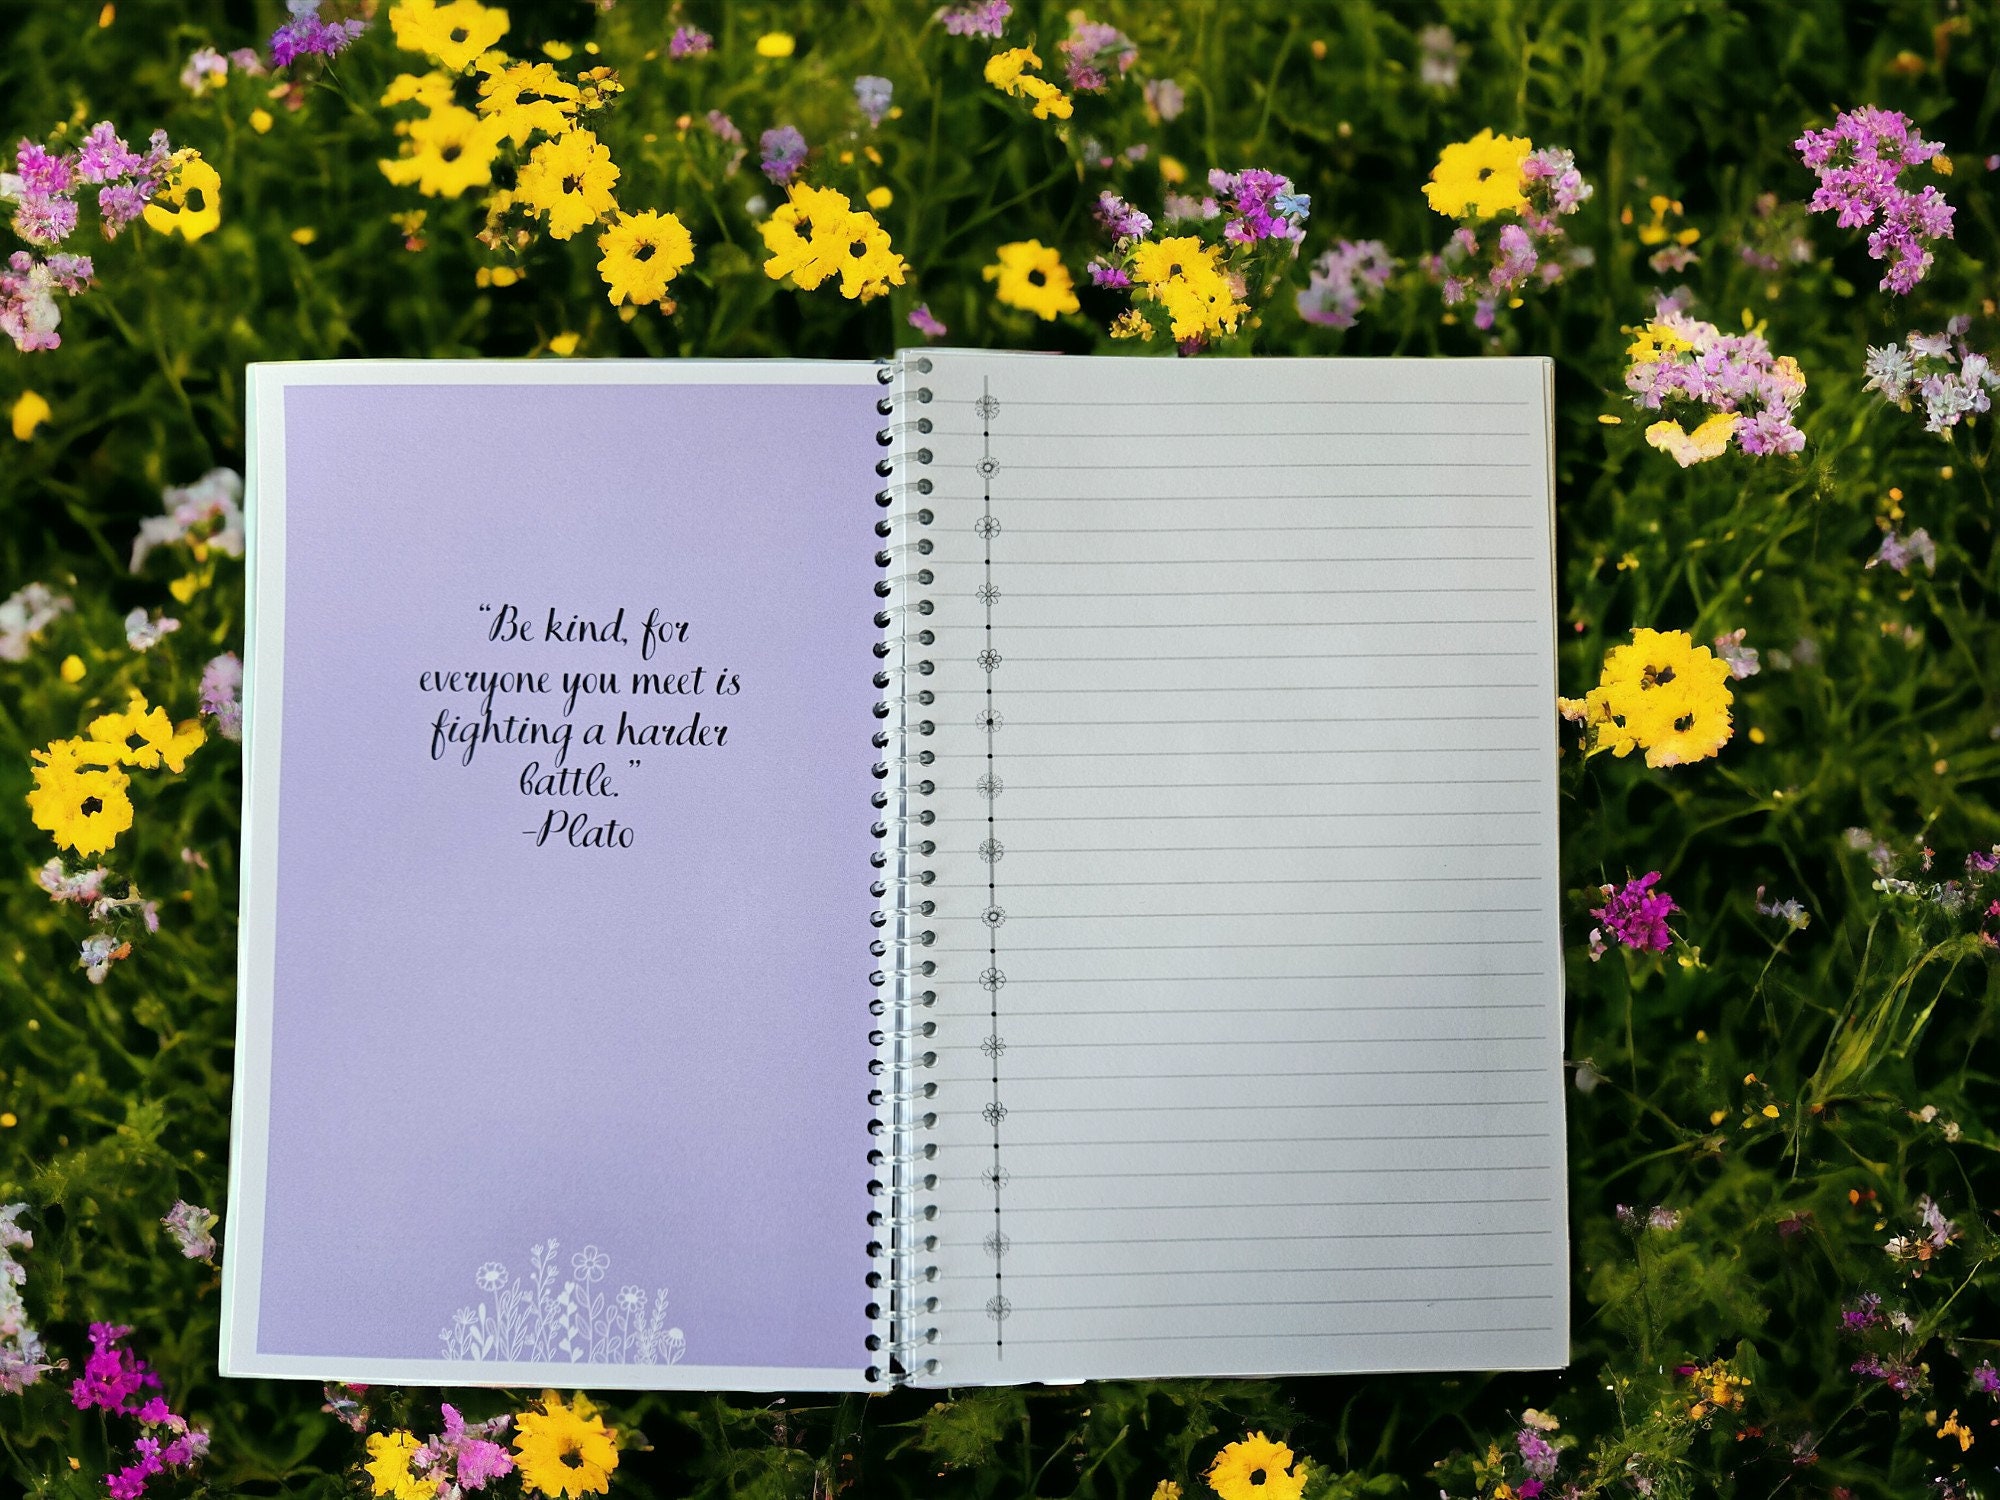 “Be kind, for
everyone you meet is
fighting a harder
battle.”
-Plato